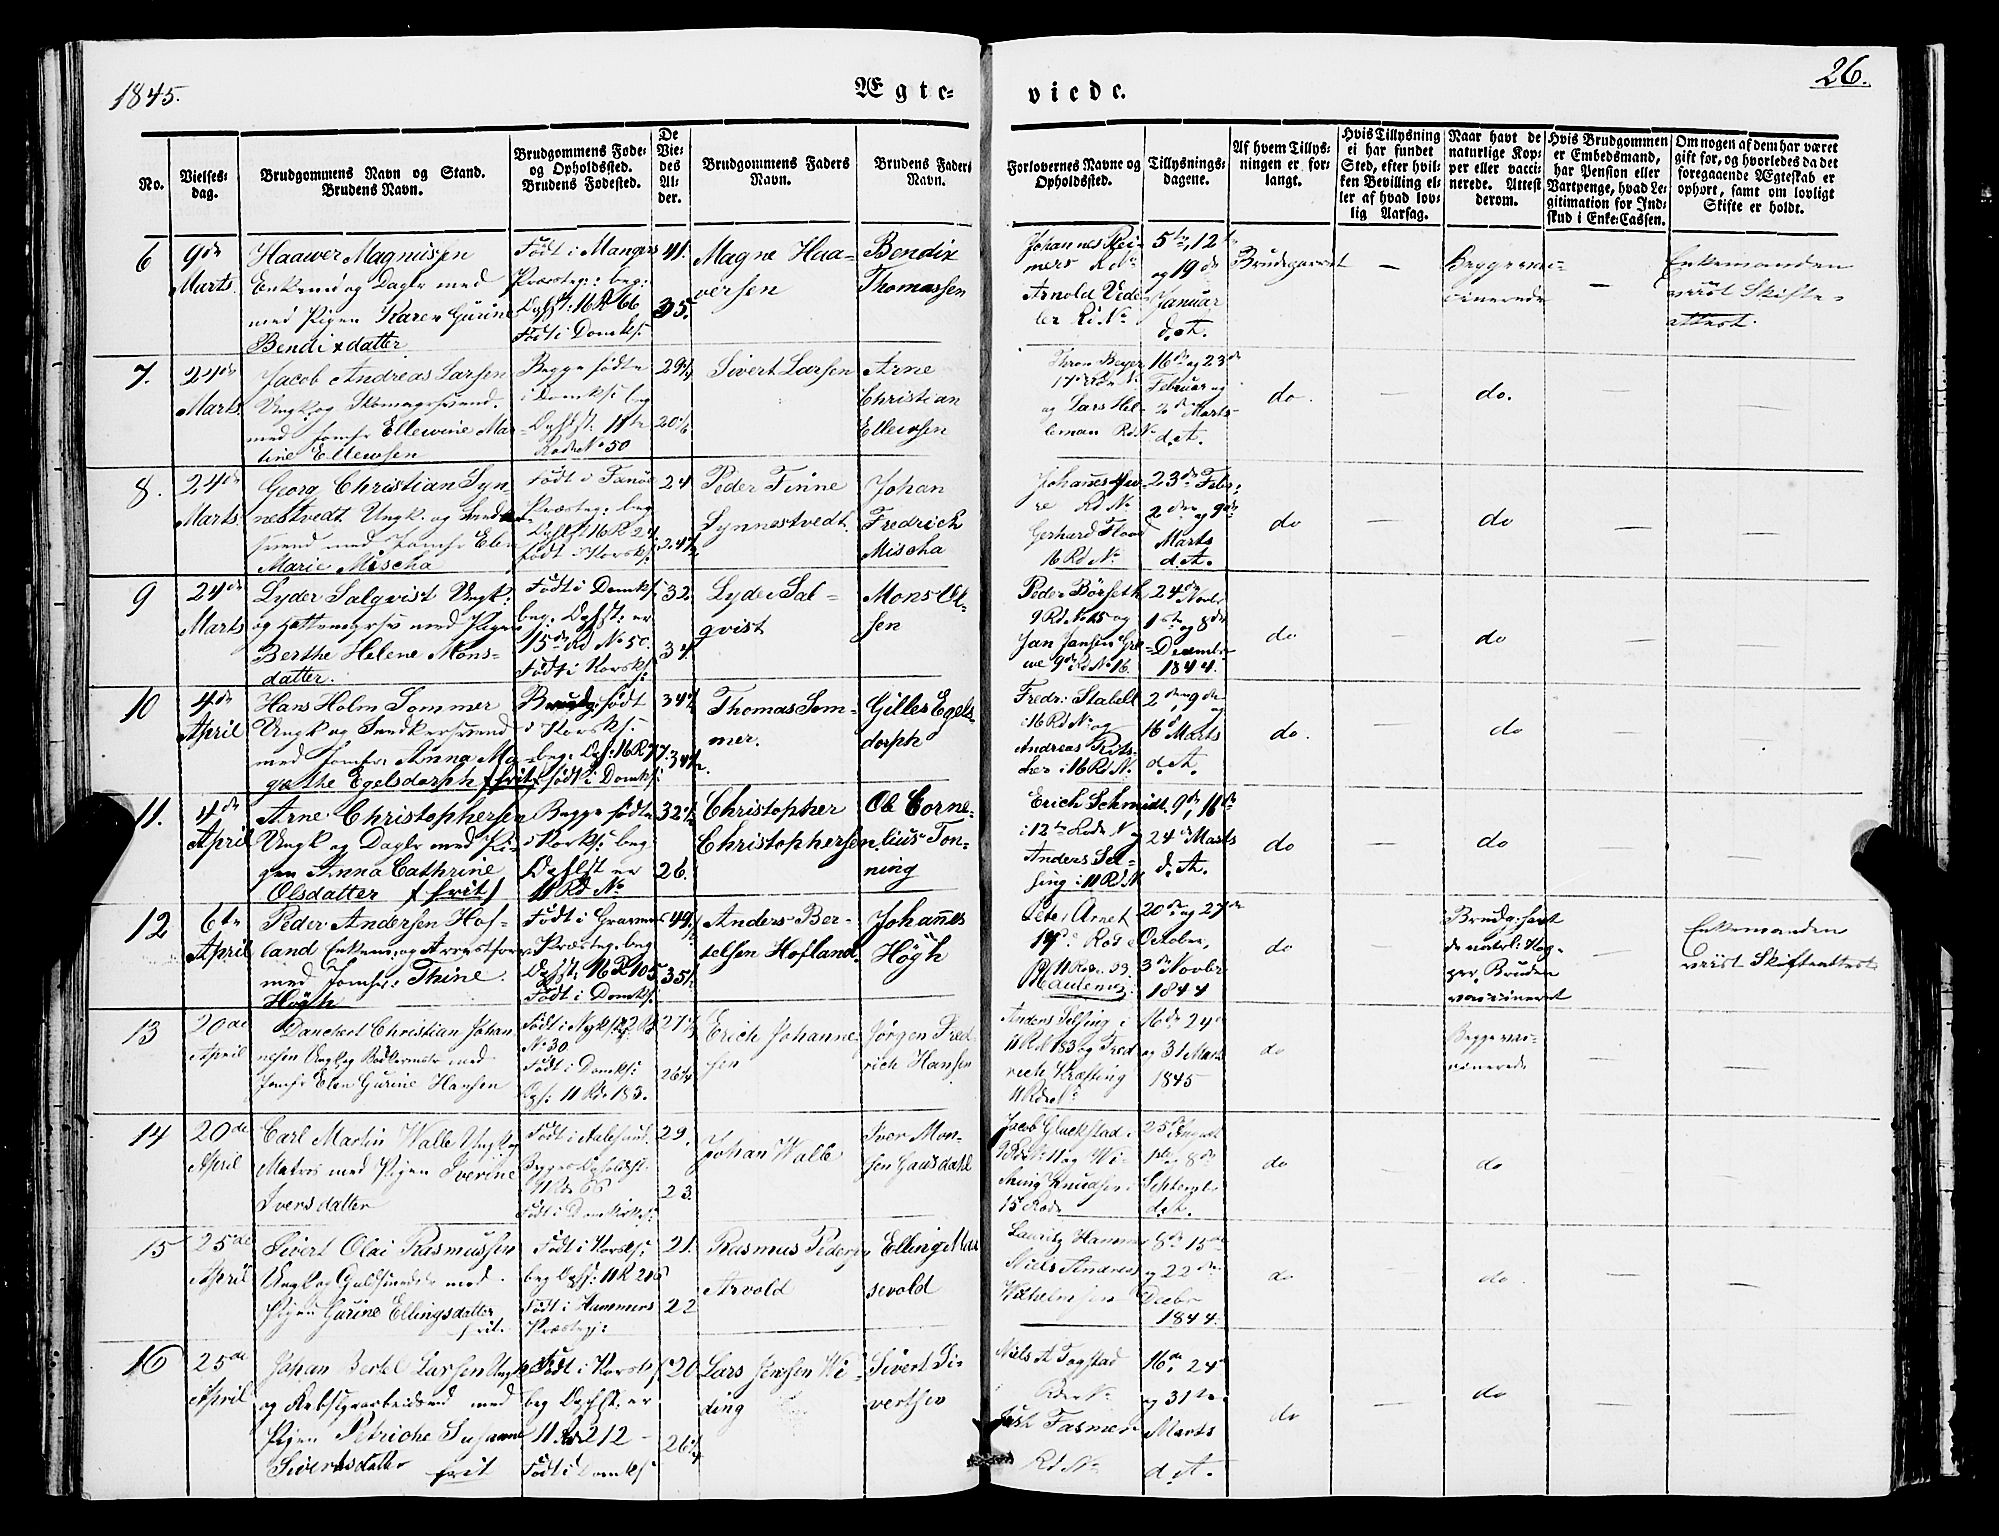 1845.
Ægte-
viede.
26.
No.
Vielses-
dag.
Brudgommens Navn og Stand.
Brudens Navn.
Brudgommens Føde-
og Opholdssted.
Brudens Fødested.
De
Vie-
des
Al-
der.
Brudgommens Faders
Navn.
Brudens Faders
Navn.
Forlovernes Navne og
Opholdssted.
Tillysnings-
dagene.
Af hvem Tillys-
ningen er for-
langt.
Hvis Tillysning
ei har fundet
Sted, efter hvil-
ken Bevilling el-
ler af hvad lov-
lig Aarsag.
Naar havt de
naturlige Kop-
per eller vacci-
nerede. Attest
derom.
Hvis Brudgommen
er Embedsmand,
har Pension eller
Vartpenge, hvad Le-
gitimation for Ind-
skud i Enke-Cassen.
Om nogen af dem har været
gift før, og hvorledes da det
foregaaende Ægteskab er
ophørt, samt om lovligt
Skifte er holdt.
6
9de
Marts.
Haawer Magnussen
Enkemd og Dagler med
med Pigen Karen Gurine
Bendixdatter
Født i Mangers
Præsteg: beg:
Ophst: 16 R 66
Født i Domks:
41.
35.
Magne Haa-
versen
Bendix
Thomassen
Johannes Rei-
mers Rd No
Arnold Vede-
ler Rd No
5te, 12te
og 19de
Januar
d. A.
Brudeparret
—
Begge vac-
cinerede
—
Enkemanden
viist Skifte-
attest.
7.
24de
Marts
Jacob Andreas Larsen
Ungk. og Skomagersvend
med Jomfr Ellevine Mar-
tine Ellewsen
Begge fødte
i Domks: beg
Ophst: 11te
Rode No 50
29
20
Sivert Larsen
Arne
Christian
Ellewsen
og Lars Hel-
leman Rd. No
16de og 23de
Februar og
2den Marts
d. A.
do.
—
do.
—
—
8.
24de
Marts
Georg Christian Syn-
nestvedt Ungk. og Snedker
svend med Jomfr Elen
Marie Mischa
Født i Fanøe
Præsteg: beg
Ophst 16 R 24
født i Korsks:
24
24½
Peder Finne
Synnestvedt.
Johan
Fredrich
Mischa
Rd No
Gerhard Flood
16 Rd No
23de Febr:
2den og 9de
Marts
d. A.
do
—
do
—
—
9
24de
Marts
Lyder Salqvist Ungk:
og Hattemgrsv med Pigen
Berthe Helene Mons-
datter.
Født i Domks:
beg: Ophst: er
15de Rd No 50.
Født i Korsks:
32.
34.
Lyder Sal-
qvist
Mons Ol-
sen
Peder Børseth
9 Rd No 15 og
Jan Jansen Gre-
we 9de Rd No 16.
24de Novbr
1ste og 8de
Decembr
1844.
do
—
do
—
—
10
4de
April
Hans Holm Sommer
Ungk og Snedkersvend
med Jomfr: Anna Mar-
grethe Egelsdorph (frit)
Brudg: født
i Korsks:
beg: Ophs: 16 R 77.
født i Domks:
34½
34½.
Thomas Som-
mer.
Gilles Egels-
dorph
Fredr: Stabell
i 16 Rd No og
Andreas Rits-
cher i 16 Rd N.
2den, 9de og
16de Marts
d. A.
do.
—
do
—
—
11.
4de
April
Arne Christophersen
Ungk og Dagler med Pi-
gen Anna Cathrine
Olsdatter (frit)
Begge fødte
i Korsks: beg
Ophst er
11 Rd No
32½
26.
Christopher
Christophersen.
Ole Corne-
lius Ton-
ning
Erich Schmidt
i 12te Rode N og
Anders Sel-
fing i 11 Rd N
9de, 16de
24de Marts
d. A.
do
—
do
—
—
12
6te
April
Peder Andersen Hof-
land Enkem: og Arrestforv
med Jomfr: Thine
Høgh
Født i Gravens
Præsteg. beg
Ophst: 16 R 105
Født i Domks:
49½
35½
Anders Ber-
telsen Hofland.
Johannes
Høgh
Peter Arnet
17de Rode
20de og 27de
October,
3de Novbr
1844
do
—
Brudg: havt
de naturl: Kop-
per, Bruden
vaccineret
—
Enkemanden
viist Skifteattest
13
20de
April
Danckert Christian Johan
nesen Ungk og Bødkermstr med
Jomfr Elen Gurine Hansen
Født i Nyks: 22 Rd
No 30
Født i Domks:
Ops: 11 Rd 183.
27½
26¼
Erich Johanne-
sen
Jørgen Fred-
rich Hansen
Anders Selfing i
11 Rd 183 og Fred-
rich Kræfting
11 Rd No
16de 24de
og 31 Marts
1845
do
—
Begge vac-
cinerede
—
—
14
20de
April
Carl Martin Walle Ungk og
Matros med Pigen Sverine
Iversdatter
Født i Aalesund.
Begges Opholdsst.
11 Rd 66
Født i Domkirkes:
29.
23.
Johan Walle
Iver Mon-
sen Gausdahl
Jacob Gluckstad i
9 Rd No 11 og
Knudsen i
15 Rode
25de August
1ste og 8de
Septembr
d. A.
do
—
do
—
—
15
25de
April
Sivert Olai Rasmussen
Ungk og Guldsmedsv med
Pigen Gurine Ellingsdatter
frit.
Født i Korsks:
beg Ophs: 11 R 206
Født i Hammers
Præsteg:
21.
22
Rasmus Peders
Arvold
Elling Mar
sevold
Lauritz Hammer
Niels Andreas
Wilhelmsen
8de 15de
og 22de
Decbr
1844.
do
—
do
—
—
16
25de
April
Johan Bertel Larsen Ungk
og Rebslagerarbeidsmd med
Pigen Petriche Susanne
Sivertsdatter frit
Født i Korsks
beg Ophst. er
11 Rd 212 –
Født i Domks:
20
26¼
Lars Jensen Wi-
ding
Sivert Si-
vertsen
Niels A Fogstad
Rd No
Fasmer
Rd No
16de 24de
og 31te
Marts
d. A.
do
—
do
—
—